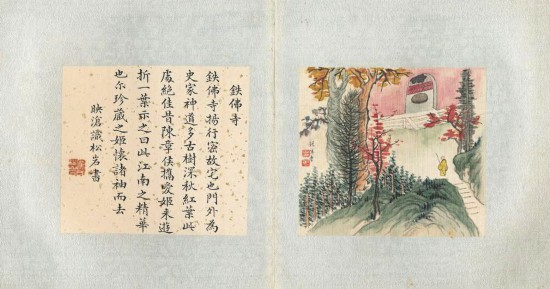 鉄佛寺
鉄佛寺揚行宻故宅也門外為
史家神道多古樹深秋紅葉此
處絶佳昔陳章侯攜愛姬来遊
折一葉示之曰此江南之精華
也尔珍蔵之姬懷諸袖而去
映滄識松岩書